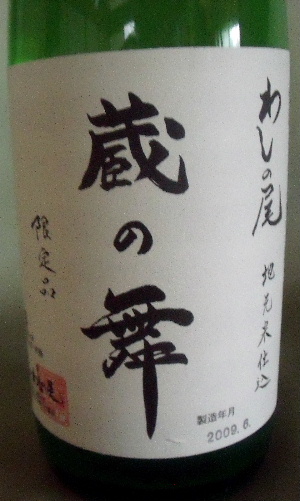 わしの尾
地元米仕込
蔵の舞
限定品
製造年月
2009.6.